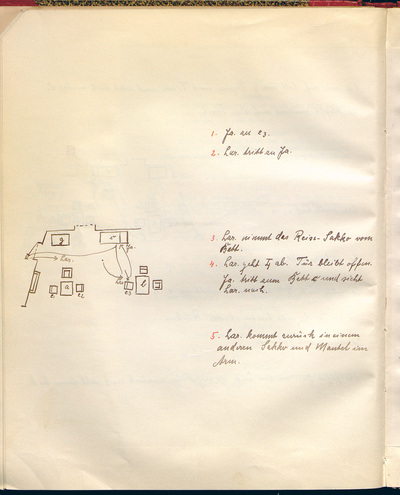 1. Ja. an e3.
2. Lar. tritt an Ja.
g
c
Ja.
Lar.
Lar.
e
a
e2
e3
b
3. Lar. nimmt das Reise-Sakko vom
Bett.
4. Lar. geht Tj ab. Tür bleibt offen.
Ja. tritt zum Bett c und sieht
Lar. nach.
5. Lar. kommt zurück in einem
anderen Sakko und Mantel im
Arm.